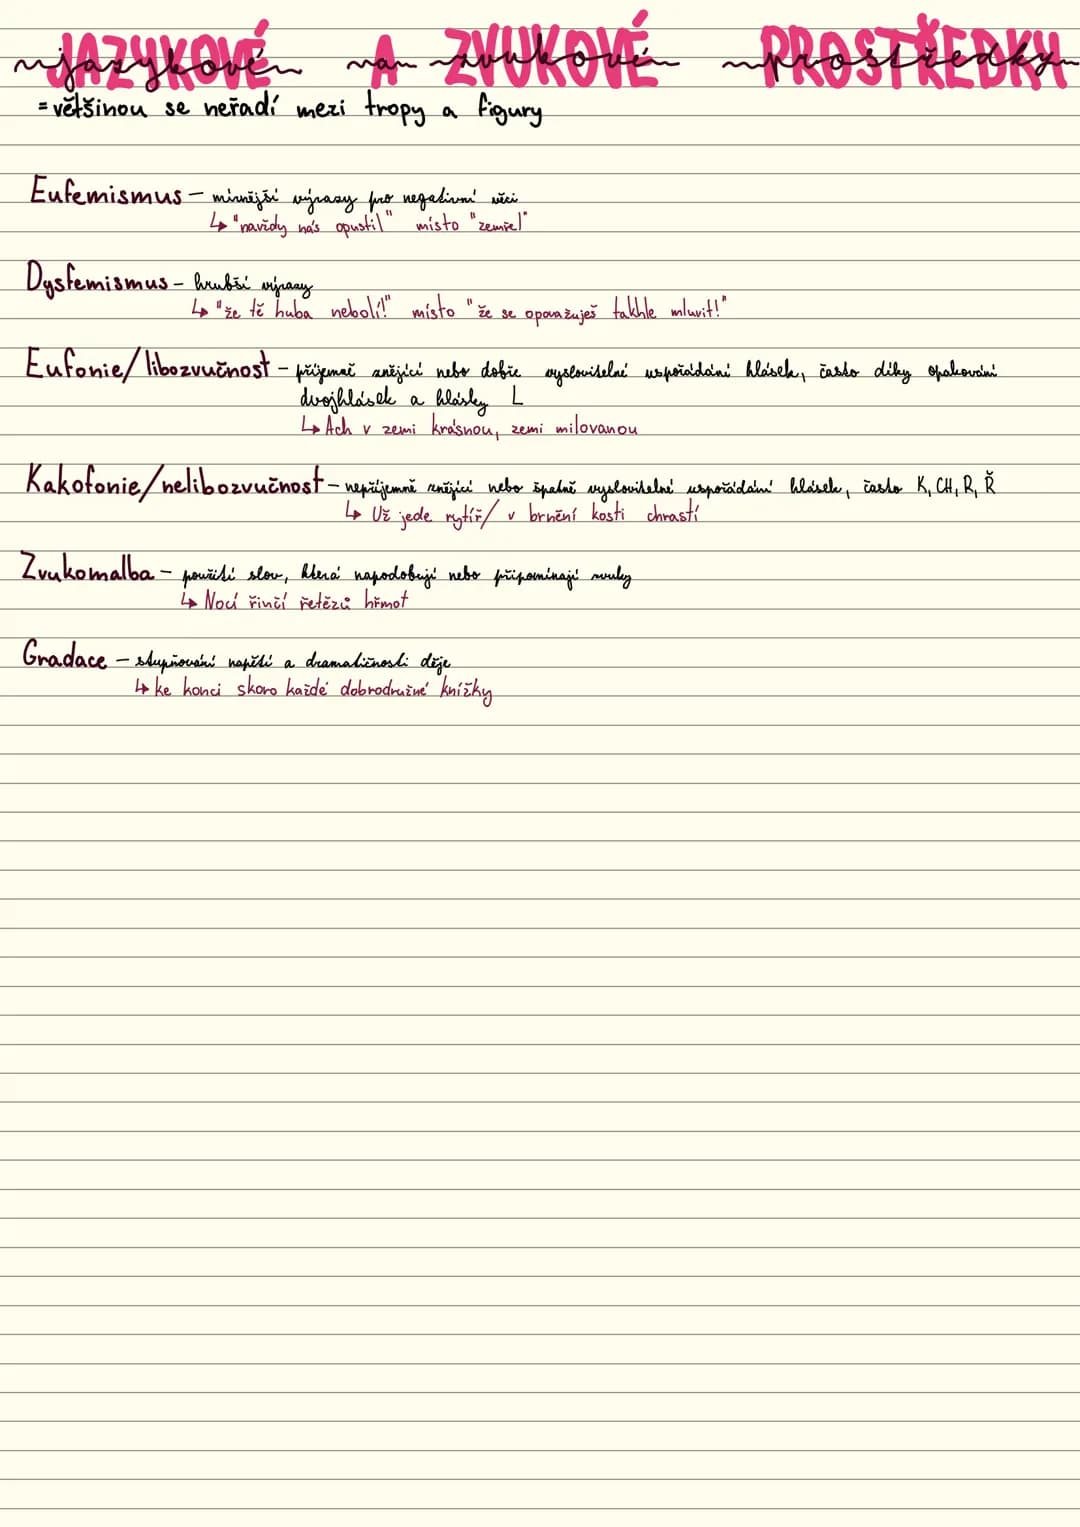 JAZYKOVÉ A ZVUKOVÉ PROSTŘEDKY
= většinou se neřadí mezi tropy a figury
Eufemismus - mírnější výrazy pro negativní věci
↳ "navždy nás opustil" místo "zemřel"
Dysfemismus - hrubší výrazy
↳ "že tě huba nebolí!" místo "že se opovažuješ takhle mluvit!"
Eufonie/libozvučnost - příjemně znějící nebo dobře vyslovitelné uspořádání hlásek, často díky opakování
dvojhlásek a hlásky L
↳ Ach v zemi krásnou, zemi milovanou
Kakofonie/nelibozvučnost - nepříjemně znějící nebo špatně vyslovitelné uspořádání hlásek, často K, CH, R, Ř
↳ Už jede rytíř/ v brnění kosti chrastí
Zvukomalba - použití slov, která napodobují nebo připomínají zvuky
↳ Nocí řinčí řetězů hřmot
Gradace - stupňování napětí a dramatičnosti děje
↳ ke konci skoro každé dobrodružné knížky